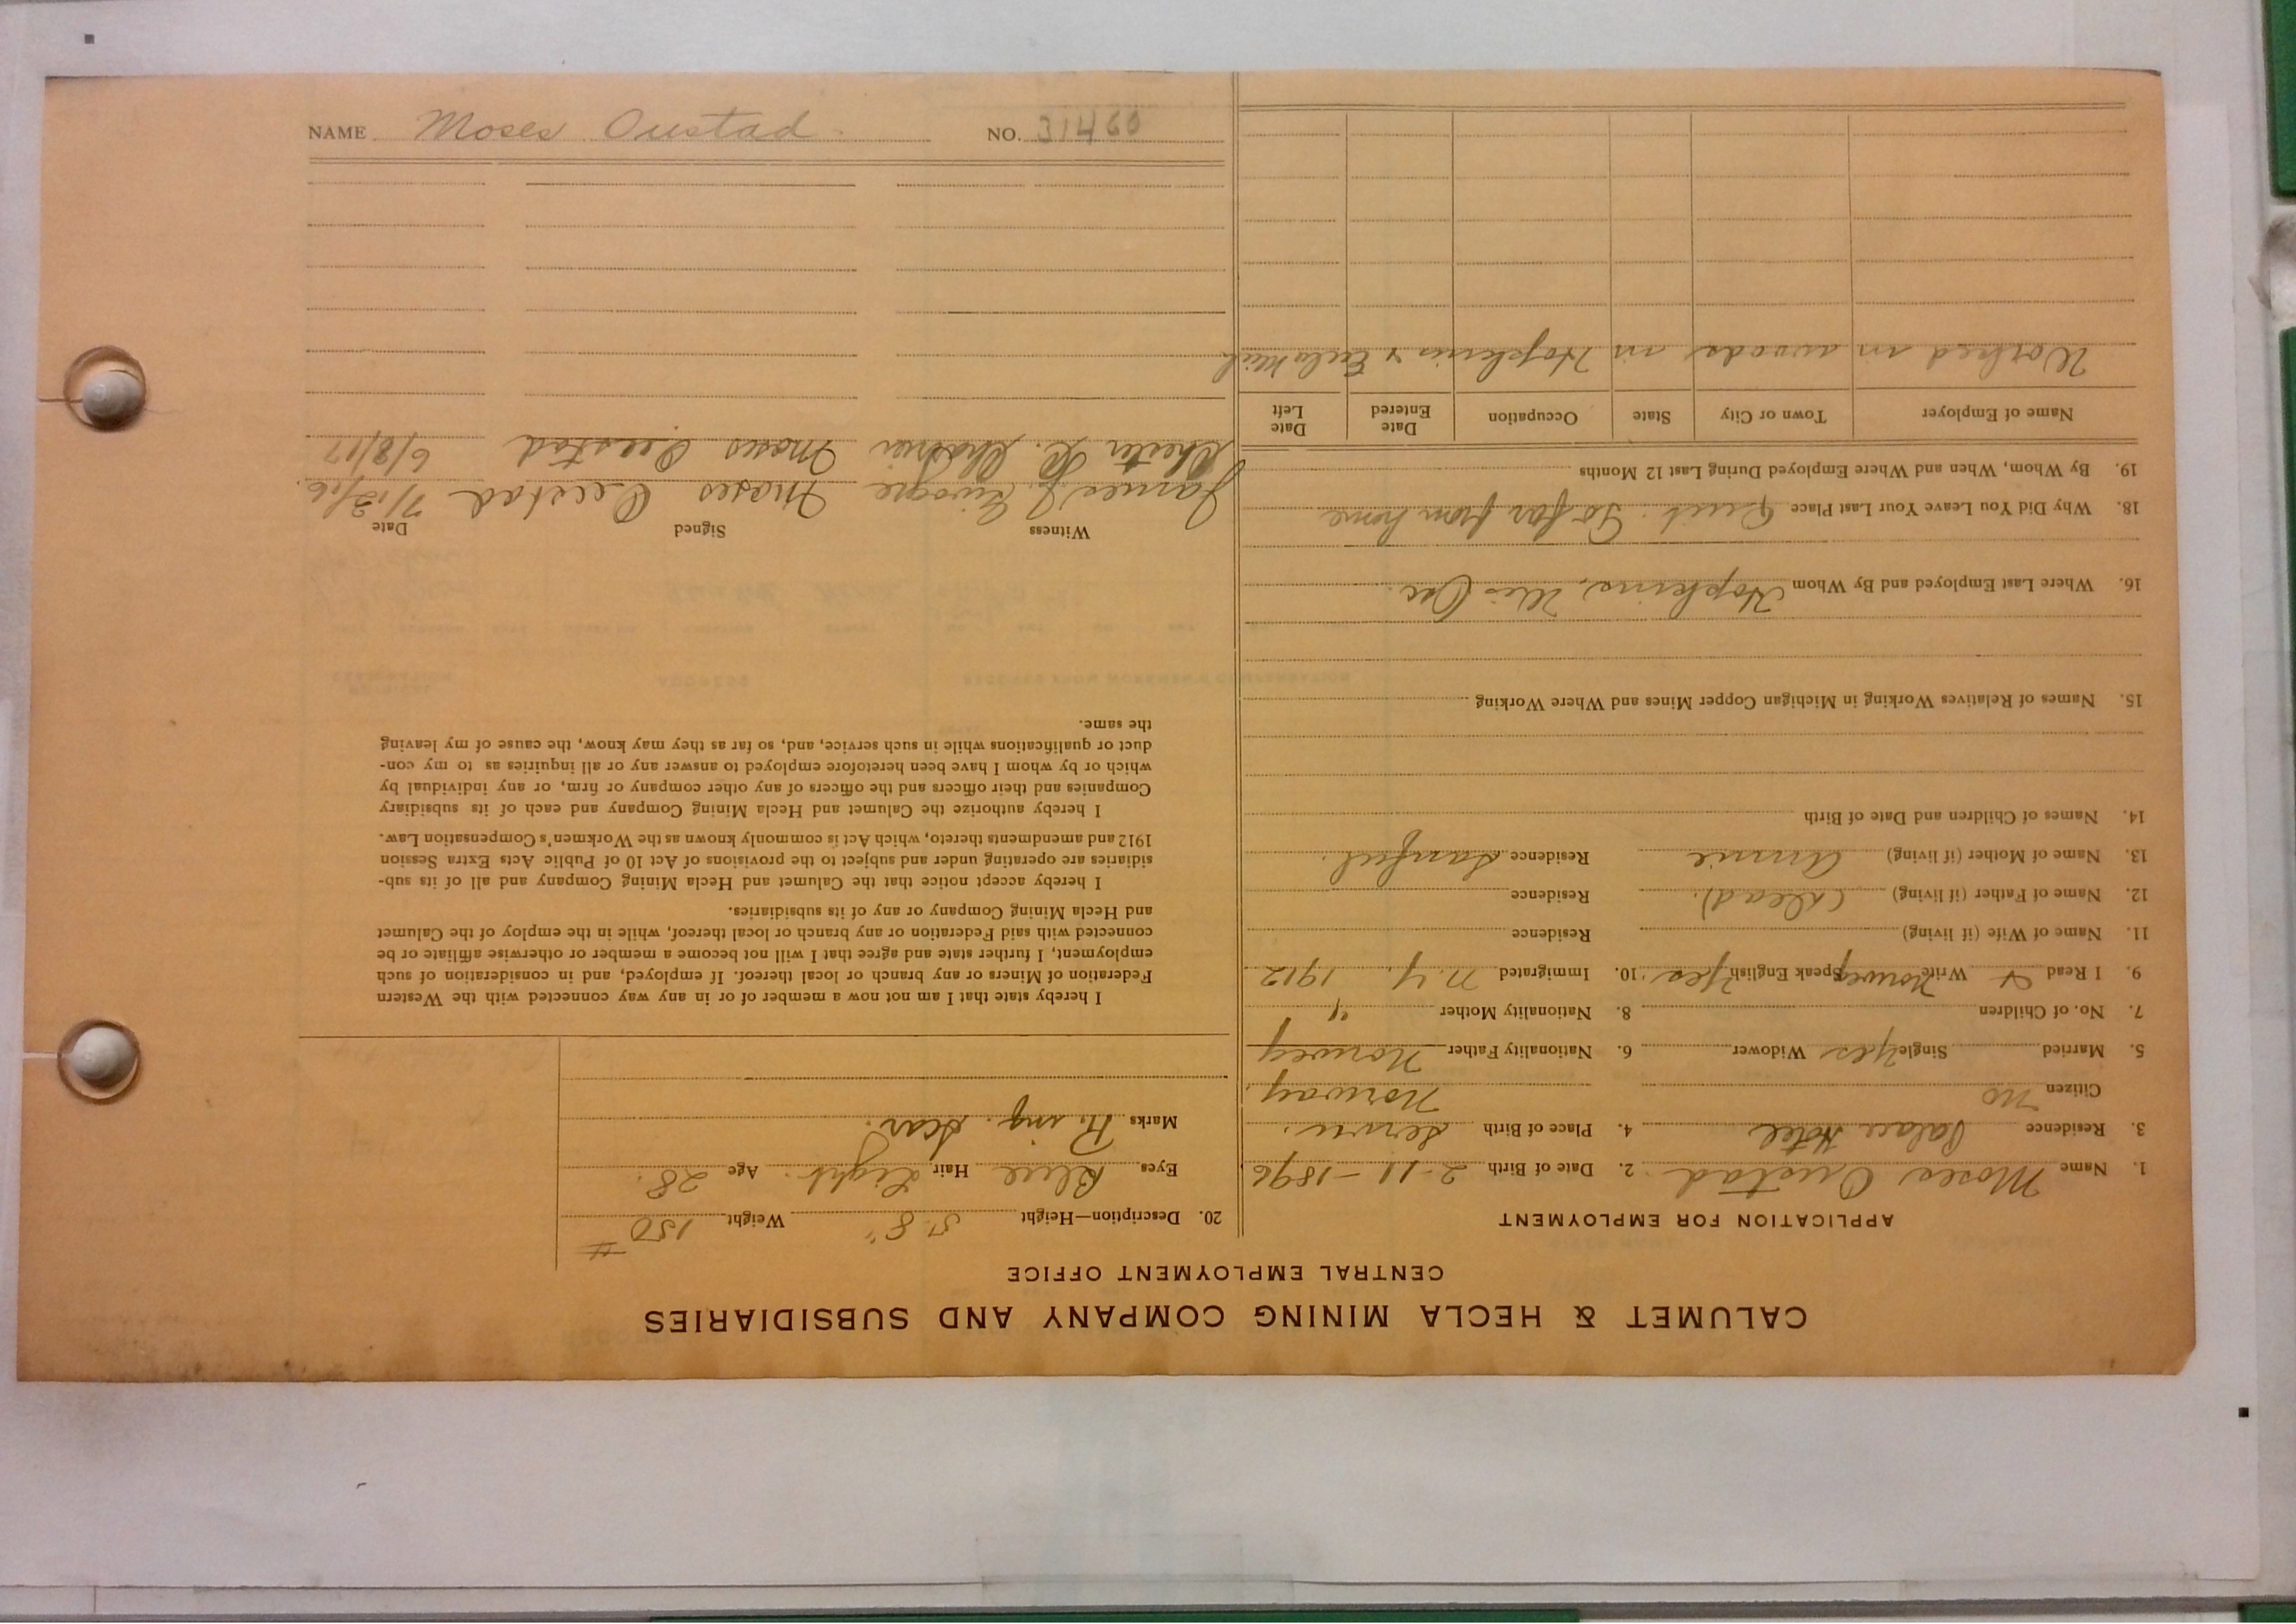 CALUMET & HECLA MINING COMPANY AND SUBSIDIARIES
CENTRAL EMPLOYMENT OFFICE
APPLICATION FOR EMPLOYMENT
1. Name Moses Oustad 2. Date of Birth 2-11-1896
3. Residence Palace Hotel 4. Place of Birth
Citizen no Norway
5. Married Single Yes Widower 6. Nationality Father Norway
7. No. of Children 8. Nationality Mother "
9. I Read & Write Norweg Speak English Yes. 10. Immigrated N.Y. 1912
11. Name of Wife (if living) Residence
12. Name of Father (if living) (Dead). Residence
13. Name of Mother (if living) Annie Residence
14. Names of Children and Date of Birth
15. Names of Relatives Working in Michigan Copper Mines and Where Working
16. Where Last Employed and By Whom Hopkins,
18. Why Did You Leave Your Last Place Quit. To far from home
19. By Whom, When and Where Employed During Last 12 Months
Name of Employer Town or City State Occupation Date Entered Date Left
Worked in woods in Hopkins & Mich
20. Description—Height 5' 8" Weight 150 #
Eyes Blue Hair Light. Age 28.
Marks scar.
I hereby state that I am not now a member of or in any way connected with the Western
Federation of Miners or any branch or local thereof. If employed, and in consideration of such
employment, I further state and agree that I will not become a member or otherwise affiliate or be
connected with said Federation or any branch or local thereof, while in the employ of the Calumet
and Hecla Mining Company or any of its subsidiaries.
I hereby accept notice that the Calumet and Hecla Mining Company and all of its sub-
sidiaries are operating under and subject to the provisions of Act 10 of Public Acts Extra Session
1912 and amendments thereto, which Act is commonly known as the Workmen's Compensation Law.
I hereby authorize the Calumet and Hecla Mining Company and each of its subsidiary
Companies and their officers and the officers of any other company or firm, or any individual by
which or by whom I have been heretofore employed to answer any or all inquiries as to my con-
duct or qualifications while in such service, and, so far as they may know, the cause of my leaving
the same.
Witness Signed Date
James J. Moses Oustad 7/12/16.
Chester Moses Oustad 6/8/17
NAME Moses Oustad. NO. 31460